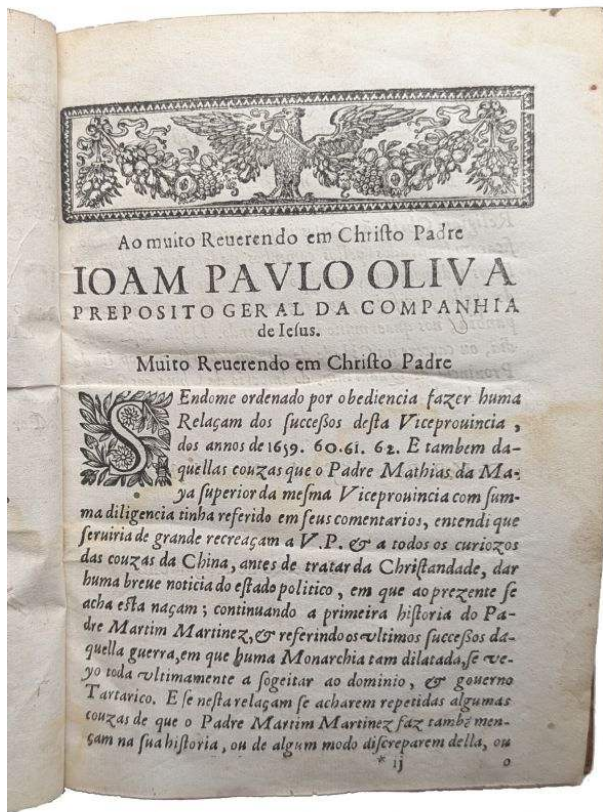 Ao muito Reuerendo em Chriſto Padre
IOAM PAVLO OLIVA
PREPOSITO GERAL DA COMPANHIA
de Ieſus.
Muito Reuerendo em Chriſto Padre
SEndome ordenado por obediencia fazer huma
Relaçam dos ſucceſsos deſta Viceprouincia ,
dos annos de 1659. 60. 61. 62. E tambem da-
quellas couzas que o Padre Mathias da Ma-
ya ſuperior da meſma Viceprouincia com ſum-
ma diligencia tinha referido em ſeus comentarios, entendi que
ſeruiria de grande recreaçam a V.P. & a todos os curiozos
das couzas da China, antes de tratar da Chriſtandade, dar
huma breue noticia do eſtado politico , em que ao prezente ſe
acha eſta naçam ; continuando a primeira hiſtoria do Pa-
dre Martim Martinez, & referindo os vltimos ſucceſsos da-
quella guerra, em que huma Monarchia tam dilatada, ſe ve-
yo toda vltimamente a ſogeitar ao dominio , & gouerno
Tartarico. E ſe neſta relaçam ſe acharem repetidas algumas
couzas de que o Padre Martim Martinez faz tambẽ men-
çam na ſua hiſtoria , ou de algum modo diſcreparem della, ou
* ij o